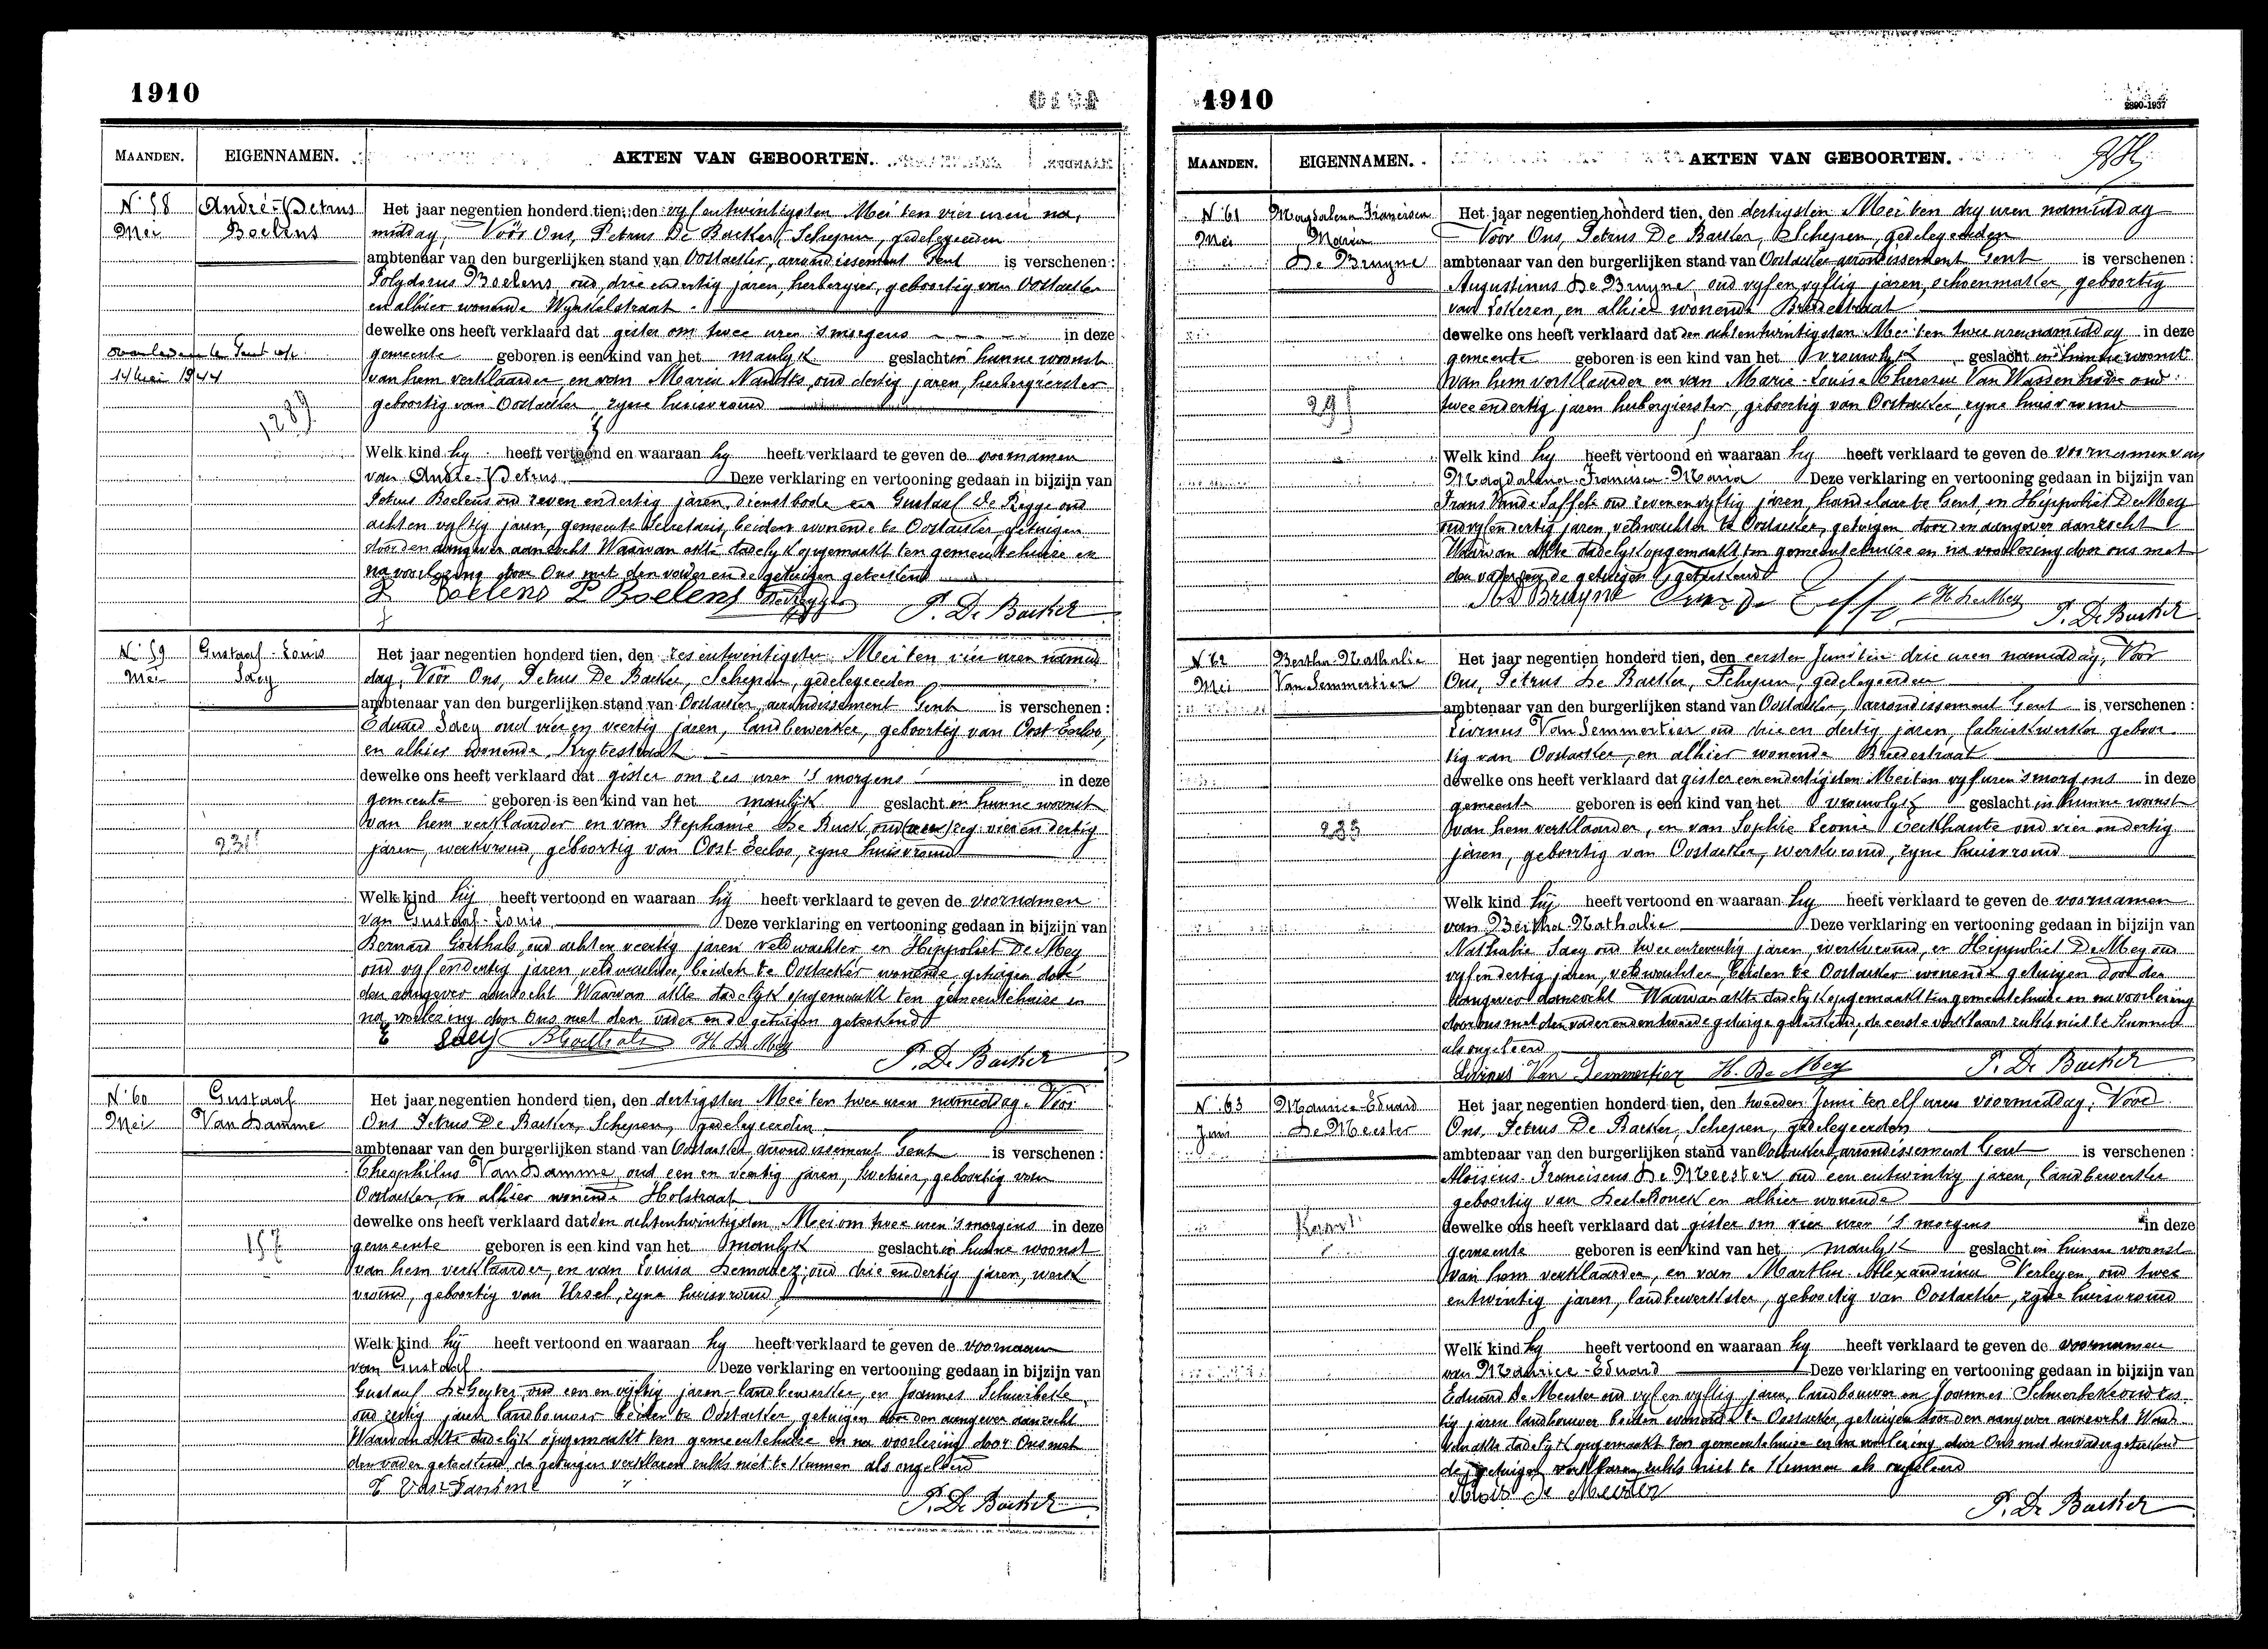 1910
MAANDEN. EIGENNAMEN. AKTEN VAN GEBOORTEN.
N. 58 André-Petrus Boelens
Mei
overleden te Gent op
14 Mei 1944
Het jaar negentien honderd tien, den vyf entwintigsten Mei ten vier uren na,
middag, Vóór Ons, Petrus De Backer, Schepen, gedelegeerden
ambtenaar van den burgerlijken stand van Oostacker, arrondissement Gent is verschenen:
Polydorus Boelens, oud drie endertig jaren, herbergier, geboortig van Oostacker
en alhier wonende Wynkelstraat
dewelke ons heeft verklaard dat gister om twee uren 's morgens in deze
gemeente geboren is een kind van het manlyk geslacht in hunne woonst
van hem verklaarder, en van Maria oud dertig jaren, herbergierster
geboortig van Oostacker, zyne huisvrouw
Welk kind hy heeft vertoond en waaraan hy heeft verklaard te geven de voornamen
van André-Petrus Deze verklaring en vertooning gedaan in bijzijn van
Petrus Boelens oud zeven endertig jaren, dienstbode en Gustaaf De Rigge oud
acht en vyftig jaren, gemeente Secretaris, beiden wonende te Oostacker, getuigen
door den aangever aanzocht Waarvan akte dadelyk opgemaakt ten gemeentehuize en
na voorlezing door Ons met den vader en de getuigen geteekend
P Boelens P Boelens P. De Backer
N. 59 Gustaaf-Louis
Mei Saey
Het jaar negentien honderd tien, den zes entwintigsten Mei ten vier uren namid
dag, Vóór Ons, Petrus De Backer, Schepen, gedelegeerden
ambtenaar van den burgerlijken stand van Oostacker, arrondissement Gent is verschenen:
Eduard Saey oud vier en veertig jaren, landbewerker, geboortig van Oost-Eecloo,
en alhier wonende
dewelke ons heeft verklaard dat gister om zes uren 's morgens in deze
gemeente geboren is een kind van het manlijk geslacht in hunne woonst
van hem verklaarder en van Stephanie De Buck oud vier en dertig
jaren, werkvrouw, geboortig van Oost-Eecloo, zyne huisvrouw
Welk kind hij heeft vertoond en waaraan hij heeft verklaard te geven de voornamen
van Gustaaf-Louis Deze verklaring en vertooning gedaan in bijzijn van
Bernard Goethals oud acht en veertig jaren veldwachter en Hippoliet De Mey
oud vyf endertig jaren, veldwachter, beiden te Oostacker wonende getuigen door
den aangever aanzocht Waarvan akte dadelijk opgemaakt ten gemeentehuize en
na voorlezing door Ons met den vader en de getuigen geteekend
E Saey B Goethals H. De Mey
P. De Backer
N. 60 Gustaaf
Mei Van Damme
157
Het jaar negentien honderd tien, den dertigsten Mei ten twee uren namiddag Vóór
Ons Petrus De Backer, Schepen, gedelegeerden
ambtenaar van den burgerlijken stand van Oostacker, arrondissement Gent is verschenen:
Theophilus Van Damme, oud een en veertig jaren, hovenier, geboortig van
Oostacker, en alhier wonende Holstraat
dewelke ons heeft verklaard dat den achtentwintigsten Mei om twee uren 's morgens in deze
gemeente geboren is een kind van het manlyk geslacht in hunne woonst
van hem verklaarder, en van Louisa oud drie endertig jaren, werk
vrouw, geboortig van Ursel, zyne huisvrouw
Welk kind hij heeft vertoond en waaraan hy heeft verklaard te geven de voornaam
van Gustaaf Deze verklaring en vertooning gedaan in bijzijn van
Gustaaf De Geyter, oud een en vijftig jaren landbewerker, en Joannes
oud zestig jaren landbouwer beiden te Oostacker, getuigen door den aangever aanzocht
Waarvan akte dadelijk opgemaakt ten gemeentehuize en na voorlezing door Ons met
den vader geteekend, de getuigen verklaren zulks niet te kunnen als ongeleerd
T Van Damme
P. De Backer
1910
2890-1937
MAANDEN. EIGENNAMEN. AKTEN VAN GEBOORTEN.
N. 61 Magdalena Francisca
Mei Maria
De Bruyne
295
Het jaar negentien honderd tien, den dertigsten Mei ten dry uren namiddag
Voor Ons, Petrus De Backer, Schepen, gedelegeerden
ambtenaar van den burgerlijken stand van Oostacker arrondissement Gent is verschenen:
Augustinus De Bruyne, oud vyf en vyftig jaren, schoenmaker, geboortig
van Lokeren, en alhier wonende Breedestraat
dewelke ons heeft verklaard dat den achtentwintigsten Mei ten twee uren namiddag in deze
gemeente geboren is een kind van het vrouwlyk geslacht in hunne woonst
van hem verklaarder en van Marie-Louise Theresia Van Wassenhove oud
twee endertig jaren herbergierster, geboortig van Oostacker, zyne huisvrouw
Welk kind hy heeft vertoond en waaraan hy heeft verklaard te geven de voornamen van
Magdalena-Francisca-Maria Deze verklaring en vertooning gedaan in bijzijn van
Frans oud zeven en vyftig jaren, handelaar te Gent, en Hippoliet De Mey
oud vyf endertig jaren, veldwachter te Oostacker, getuigen door den aangever aanzocht
Waarvan akte dadelyk opgemaakt ten gemeentehuize en na voorlezing door ons met
den vader en de getuigen geteekend
De Bruyne H. De Mey P. De Backer
N. 62 Bertha-Nathalie
Mei Van Semmertier
Het jaar negentien honderd tien, den eersten Juni ten drie uren namiddag, Vóór
Ons, Petrus De Backer, Schepen, gedelegeerden
ambtenaar van den burgerlijken stand van Oostacker, arrondissement Gent is verschenen:
Livinus Van Semmertier oud drie en dertig jaren, fabriekwerker geboor
tig van Oostacker, en alhier wonende Breedestraat
dewelke ons heeft verklaard dat gister een endertigsten Mei ten vyf uren 's morgens in deze
gemeente geboren is een kind van het vrouwlyk geslacht in hunne woonst
van hem verklaarder, en van Sophie Leonie oud vier endertig
jaren, geboortig van Oostacker, werkvrouw, zyne huisvrouw
Welk kind hij heeft vertoond en waaraan hy heeft verklaard te geven de voornamen
van Bertha-Nathalie Deze verklaring en vertooning gedaan in bijzijn van
Nathalie Saey oud jaren, werkvrouw, en Hippoliet De Mey oud
vyf endertig jaren, veldwachter beiden te Oostacker wonende getuigen door den
aangever aanzocht Waarvan akte dadelyk opgemaakt ten gemeentehuize en na voorlezing
door ons met den vader en den tweede getuige geteekend, de eerste verklaart zulks niet te kunnen
als ongeleerd
Livinus Van Semmertier H. De Mey P. De Backer
N. 63 Maurice-Eduard
Juni De Meester
Het jaar negentien honderd tien, den tweeden Juni ten elf uren voormiddag, Voor
Ons, Petrus De Backer, Schepen, gedelegeerden
ambtenaar van den burgerlijken stand van Oostacker, arrondissement Gent is verschenen:
Aloisius-Franciscus De Meester oud een entwintig jaren, landbewerker
geboortig van Destelbonck en alhier wonende
dewelke ons heeft verklaard dat gister om vier uren 's morgens in deze
gemeente geboren is een kind van het manlyk geslacht in hunne woonst
van hem verklaarder, en van Martha-Alexandrina Verleyen, oud twee
entwintig jaren, landbewerkster, geboortig van Oostacker, zyne huisvrouw
Welk kind hy heeft vertoond en waaraan hy heeft verklaard te geven de voornamen
van Maurice-Eduard Deze verklaring en vertooning gedaan in bijzijn van
Eduard De Meester oud vyf en vyftig jaren, landbouwer en Joannes oud zes
tig jaren landbouwer beiden wonende te Oostacker, getuigen door den aangever aanzocht Waar
van akte dadelyk opgemaakt ten gemeentehuize en na voorlezing door Ons met den vader geteekend
de getuigen verklaren zulks niet te kunnen als ongeleerd
Alois De Meester
P. De Backer